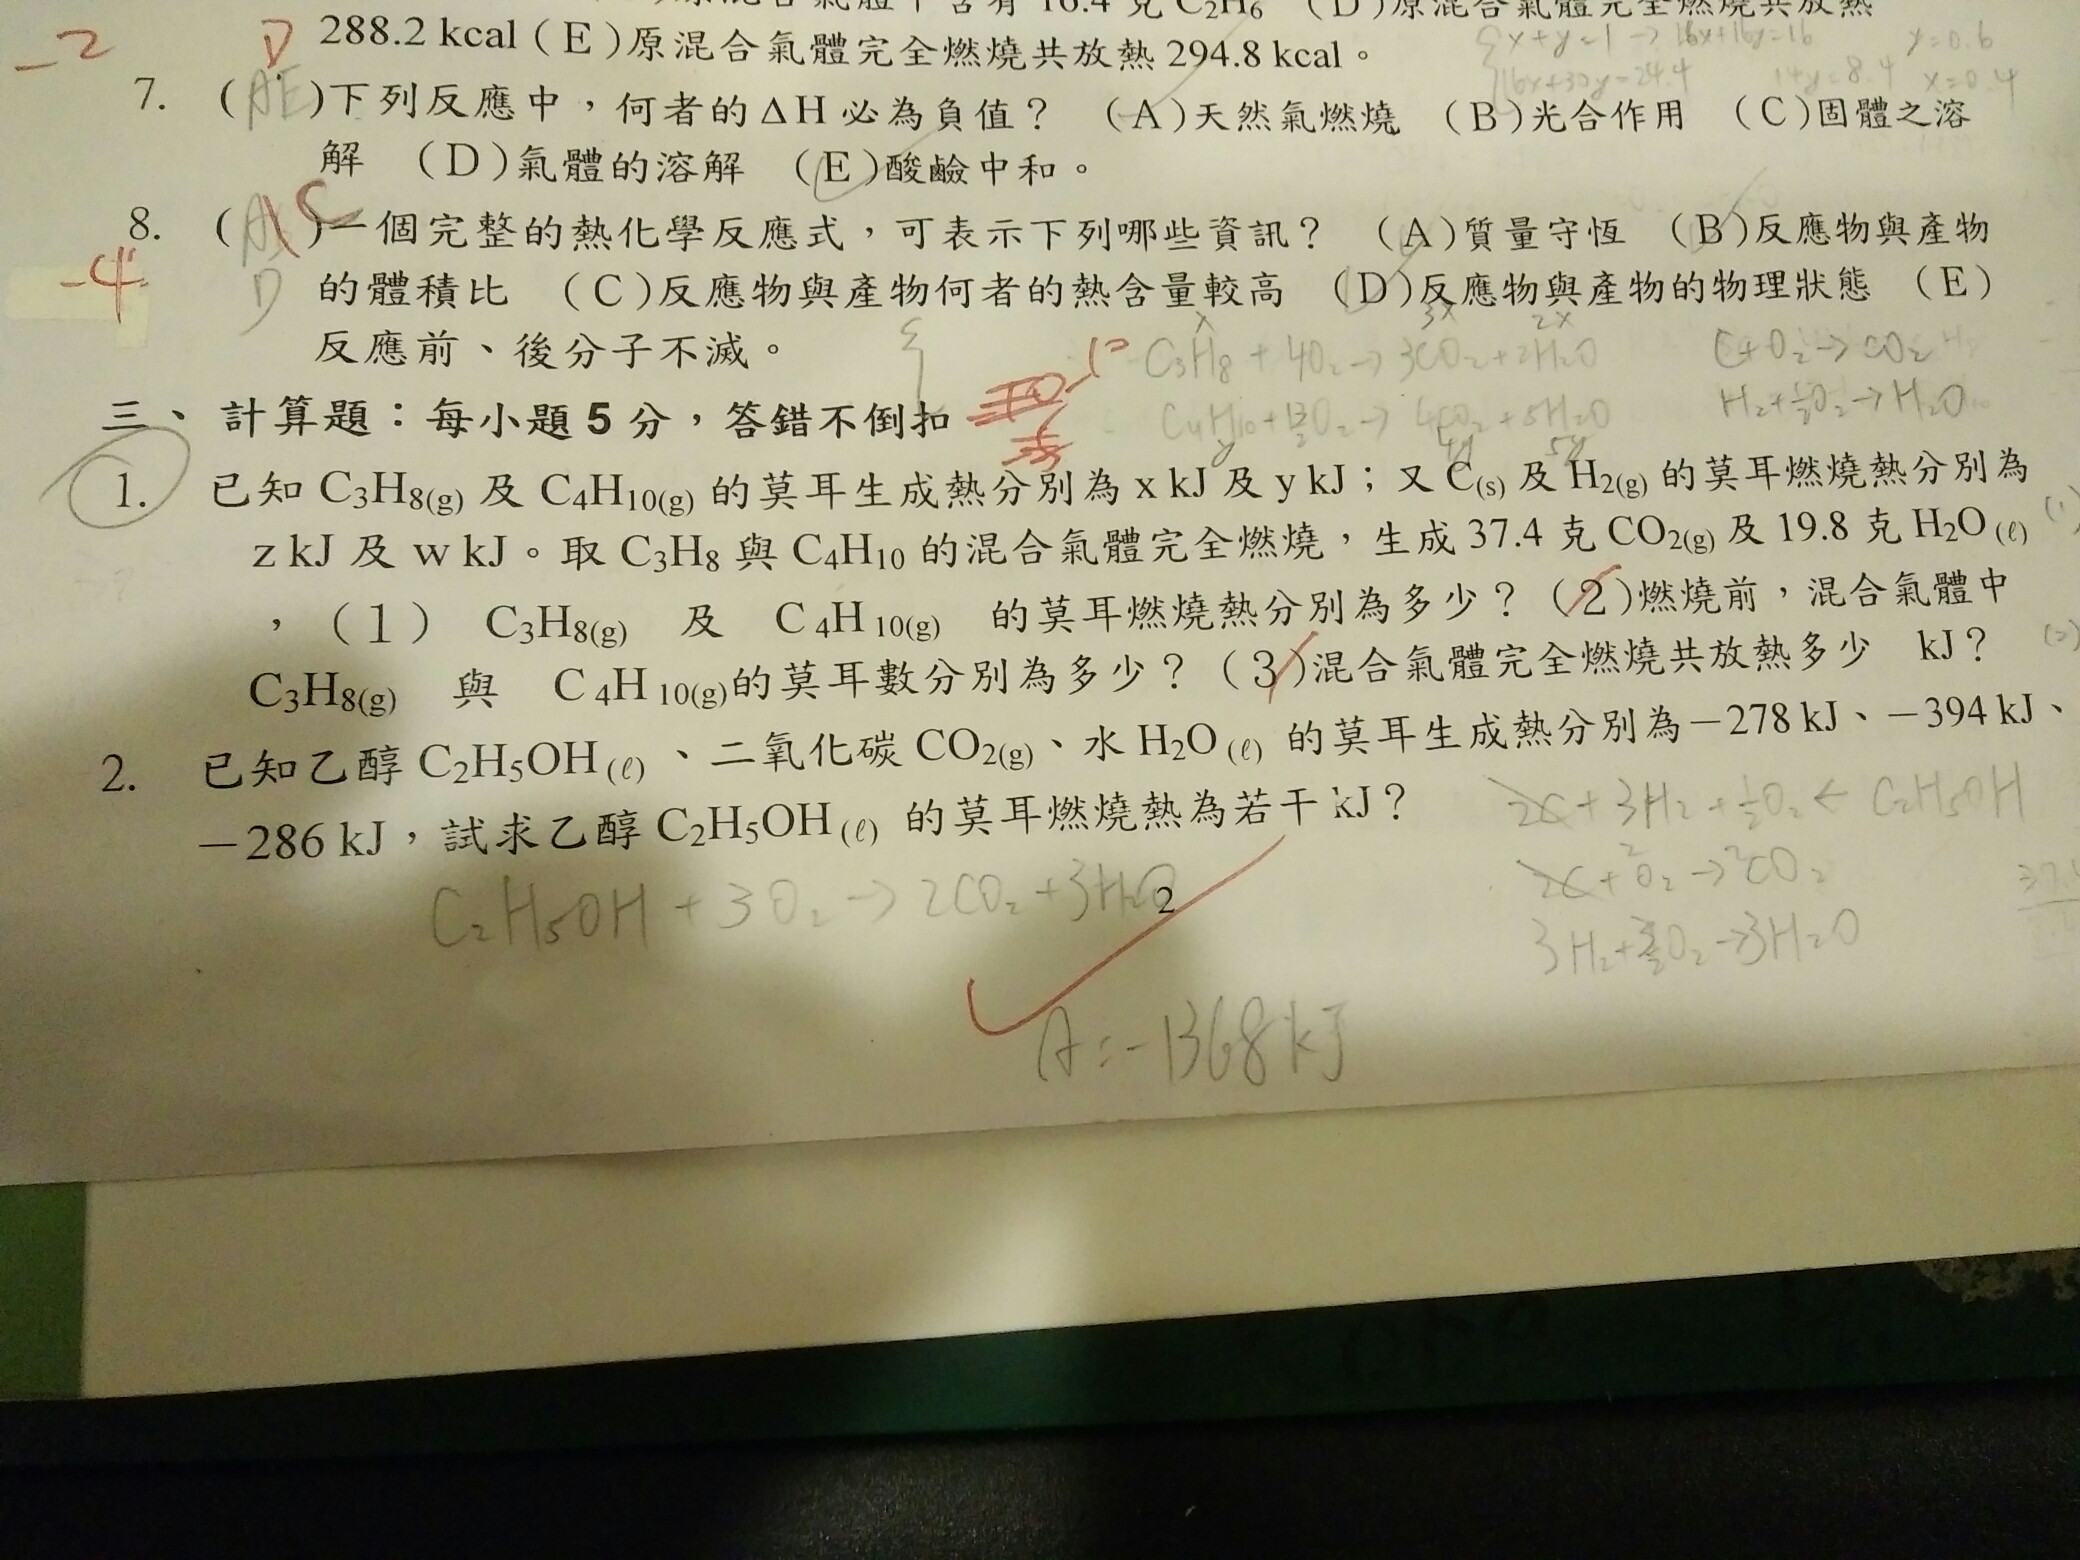 原混合氣體中含有 16.4 克 C2H6 (D)原混合氣體完全燃燒共放熱
288.2 kcal (E)原混合氣體完全燃燒共放熱 294.8 kcal。
x+y=1→16x+16y=16 y=0.6
16x+30y=24.4 14y=8.4 x=0.4
-2 D
7. (AE)下列反應中，何者的ΔH 必為負值？ (A)天然氣燃燒 (B)光合作用 (C)固體之溶
解 (D)氣體的溶解 (E)酸鹼中和。
8. ( C )一個完整的熱化學反應式，可表示下列哪些資訊？ (A)質量守恆 (B)反應物與產物
-4 D 的體積比 (C)反應物與產物何者的熱含量較高 (D)反應物與產物的物理狀態 (E)
反應前、後分子不滅。
x 3x 2x
C3H8 + 4O2→3CO2+2H2O C+O2→CO2
C4H10+13/2O2→4CO2+5H2O H2+1/2O2→H2O
y 4y 5y
三、計算題：每小題 5 分，答錯不倒扣
1. 已知 C3H8(g) 及 C4H10(g) 的莫耳生成熱分別為 x kJ 及 y kJ；又 C(s) 及 H2(g) 的莫耳燃燒熱分別為
z kJ 及 w kJ。取 C3H8 與 C4H10 的混合氣體完全燃燒，生成 37.4 克 CO2(g) 及 19.8 克 H2O(ℓ) (1)
，(1) C3H8(g) 及 C4H10(g) 的莫耳燃燒熱分別為多少？(2)燃燒前，混合氣體中
C3H8(g) 與 C4H10(g)的莫耳數分別為多少？(3)混合氣體完全燃燒共放熱多少 kJ？ (2)
2. 已知乙醇 C2H5OH(ℓ)、二氧化碳 CO2(g)、水 H2O(ℓ) 的莫耳生成熱分別為－278 kJ、－394 kJ、
－286 kJ，試求乙醇 C2H5OH(ℓ) 的莫耳燃燒熱為若干 kJ？
2C+3H2+1/2O2←C2H5OH
2C+2O2→2CO2
3H2+3/2O2→3H2O
C2H5OH+3O2→2CO2+3H2O
2
A=-1368kJ